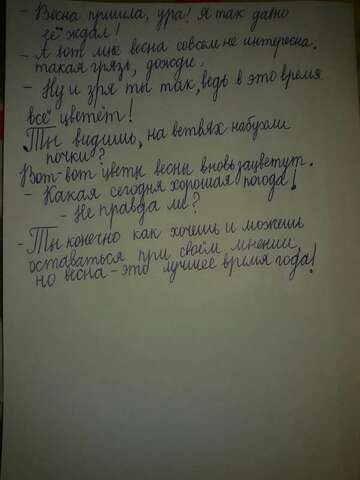 - Весна пришла, ура! Я так давно
её ждал!
- А вот мне весна совсем не интересна,
такая грязь, дожди.
- Ну и зря ты так, ведь в это время
всё цветёт!
Ты видишь, на ветвях набухли
почки?
Вот-вот цветы весны вновь зацветут.
- Какая сегодня хорошая погода!
- Не правда ли?
- Ты конечно как хочешь и можешь
оставаться при своём мнении,
но весна - это лучшее время года!